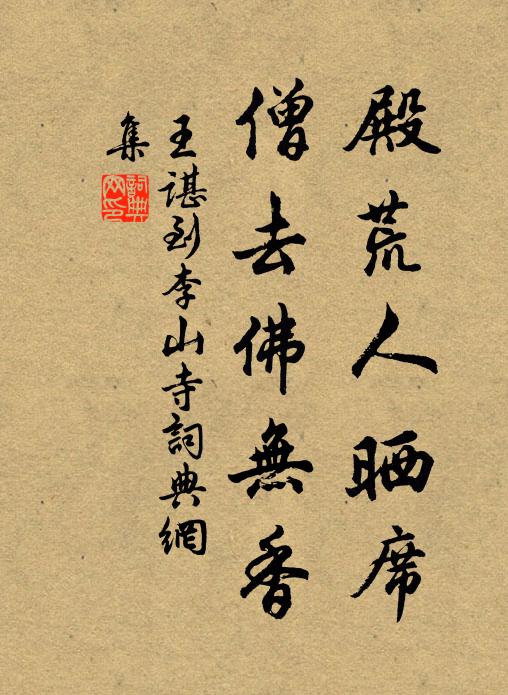 殿荒人晒席
僧去佛無香
王諶到李山寺詞典網
集
詞典
网印